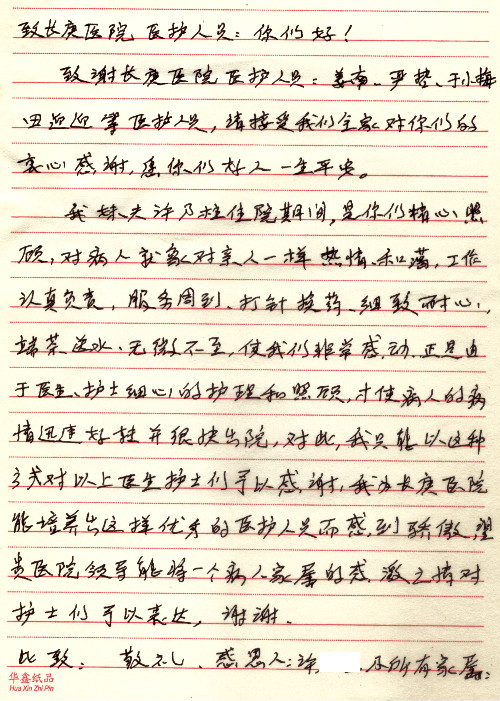 致长庚医院医护人员：你们好！
致谢长庚医院医护人员：姜南、严哲、于小梅
田迎迎等医护人员，请接受我们全家对你们的
衷心感谢，愿你们好人一生平安。
我妹夫许乃柱住院期间，是你们精心照
顾，对病人就象对亲人一样热情、和蔼，工作
认真负责，服务周到、打针换药、细致耐心，
端茶送水、无微不至，使我们非常感动，正是由
于医生、护士细心的护理和照顾，才使病人的病
情迅速好转并很快出院，对此，我只能以这种
方式对以上医生护士们予以感谢，我为长庚医院
能培养出这样优秀的医护人员而感到骄傲，望
贵医院领导能将一个病人家属的感激之情对
护士们予以表达，谢谢。
此致：敬礼、感恩人：许 及所有家属：
华鑫纸品
Hua Xin Zhi Pin